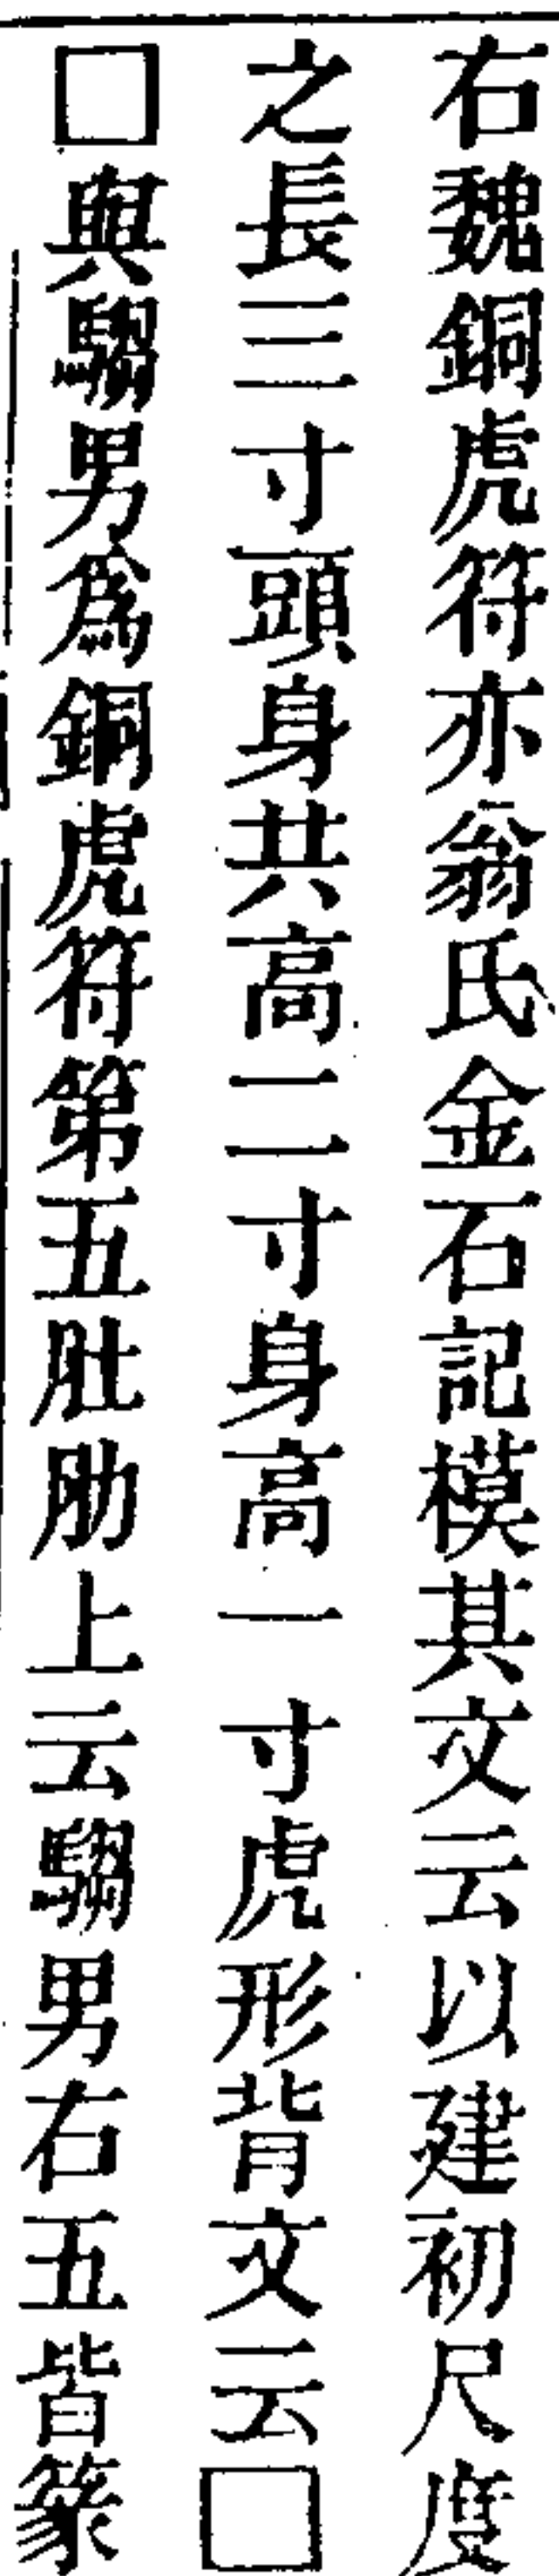 右魏銅虎符亦翁氏金石記模其文云以建初尺度
之長三寸頭身共高二寸身高一寸虎形背文云□
□與騶男爲銅虎符第五肚肋上云騶男右五皆篆